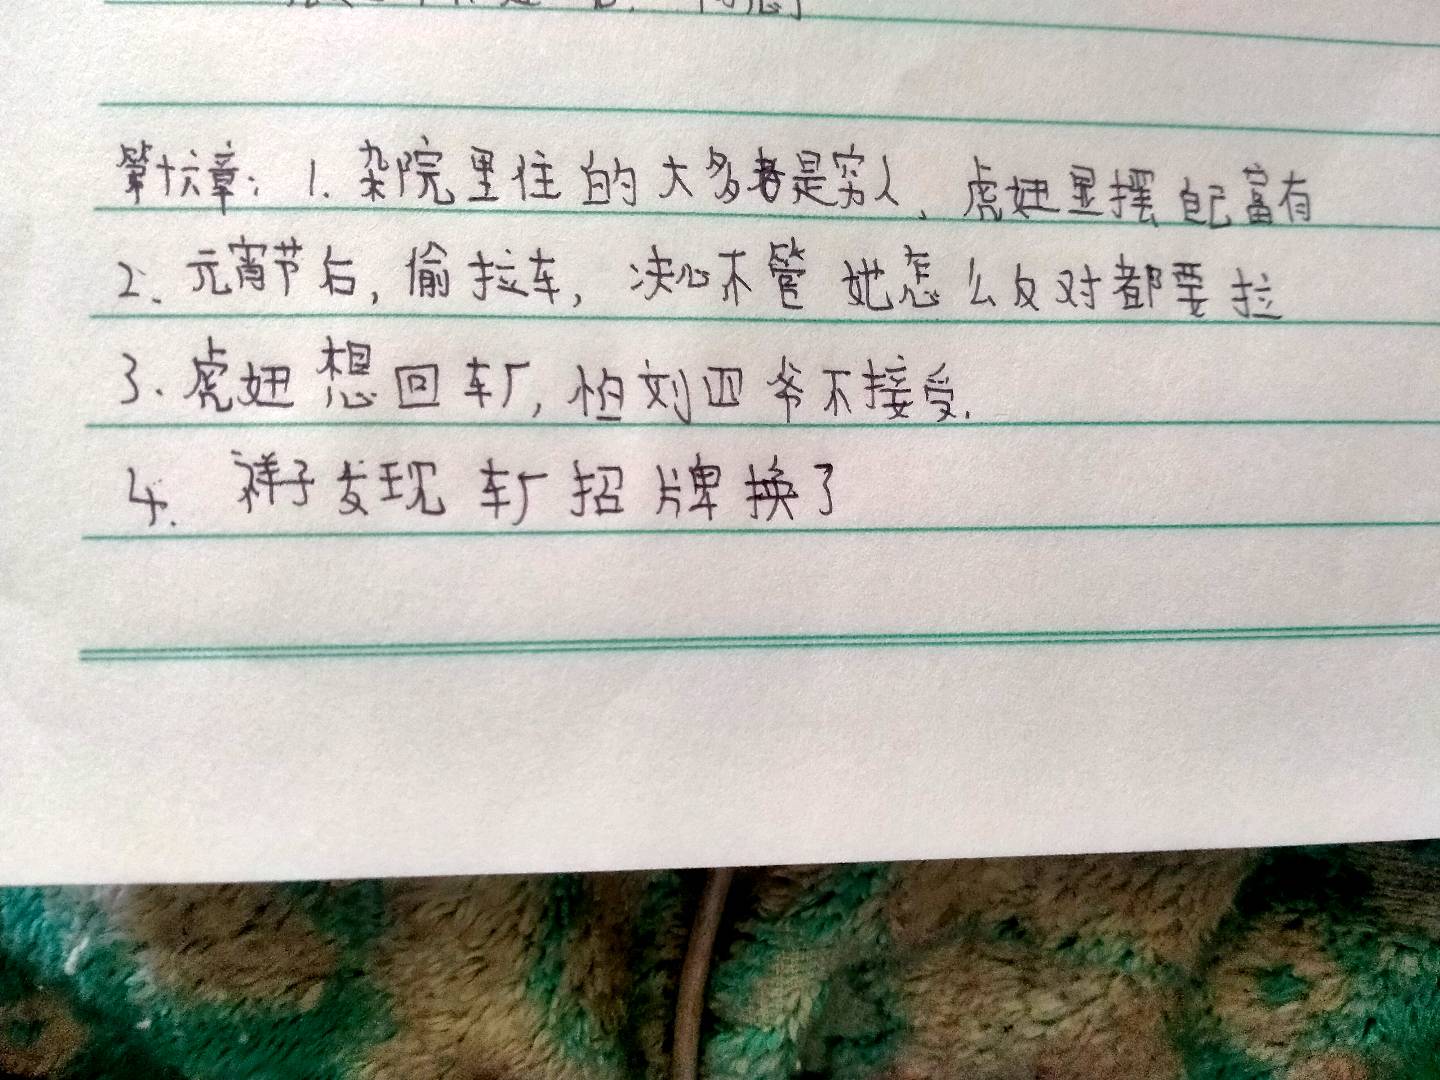 第十六章：1. 杂院里住的大多者是穷人、虎妞显摆自己富有
2. 元宵节后，偷拉车，决心不管她怎么反对都要拉
3. 虎妞想回车厂，怕刘四爷不接受.
4. 祥子发现车厂招牌换了